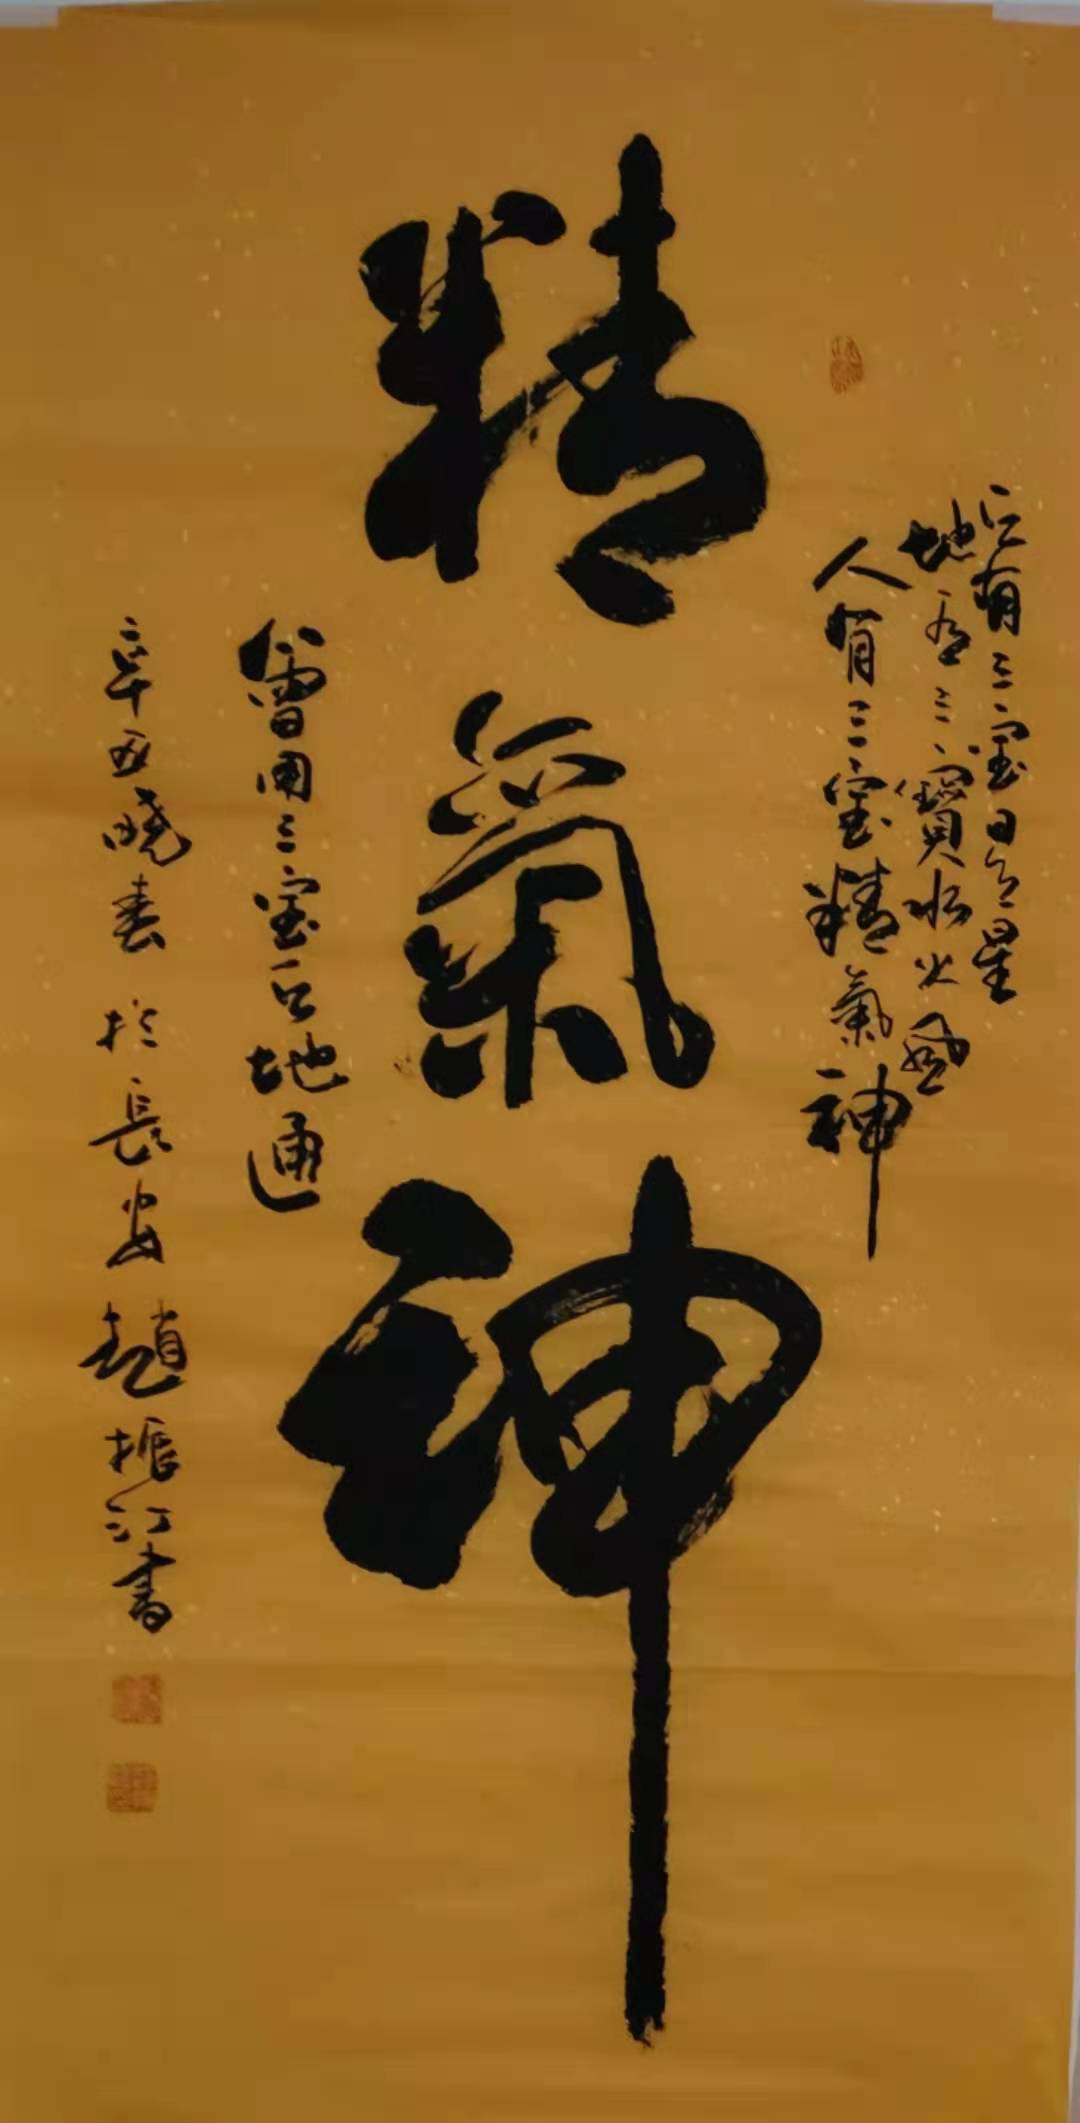 天有三宝日月星
地有三寳水火風
人有三宝精氣神
精氣神
會用三宝天地通
辛丑暁春 於長安 趙振江書